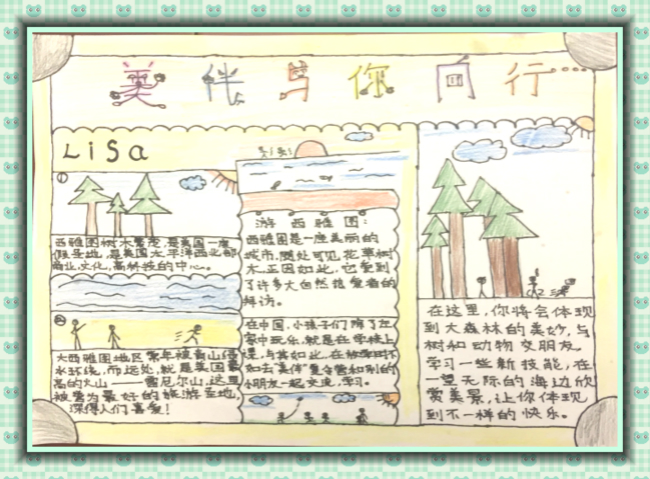 美伴与你同行……
LiSa
①
西雅图树木繁茂,是美国一座
假圣地,是美国太平洋西北部
商业,文化,高科技的中心。
②
大西雅图地区常年被青山绿
水环绕,而远处,就是美国最
高的火山——雷尼尔山,这里
被誉为最好的旅游圣地,
深得人们喜爱!
游西雅图:
西雅图是一座美丽的
城市,随处可见花草树
木,正因如此,它受到
了许多大自然热爱者的
拜访。
在中国,小孩子们除了在
家中玩乐,就是在学校上
课,与其如此,在
如去美伴夏令营和别的
小朋友一起交流,学习。
在这里,你将会体现
到大森林的美妙,与
树和动物交朋友。
学习一些新技能,在
一望无际的海边欣
赏美景,让你体现
到不一样的快乐。